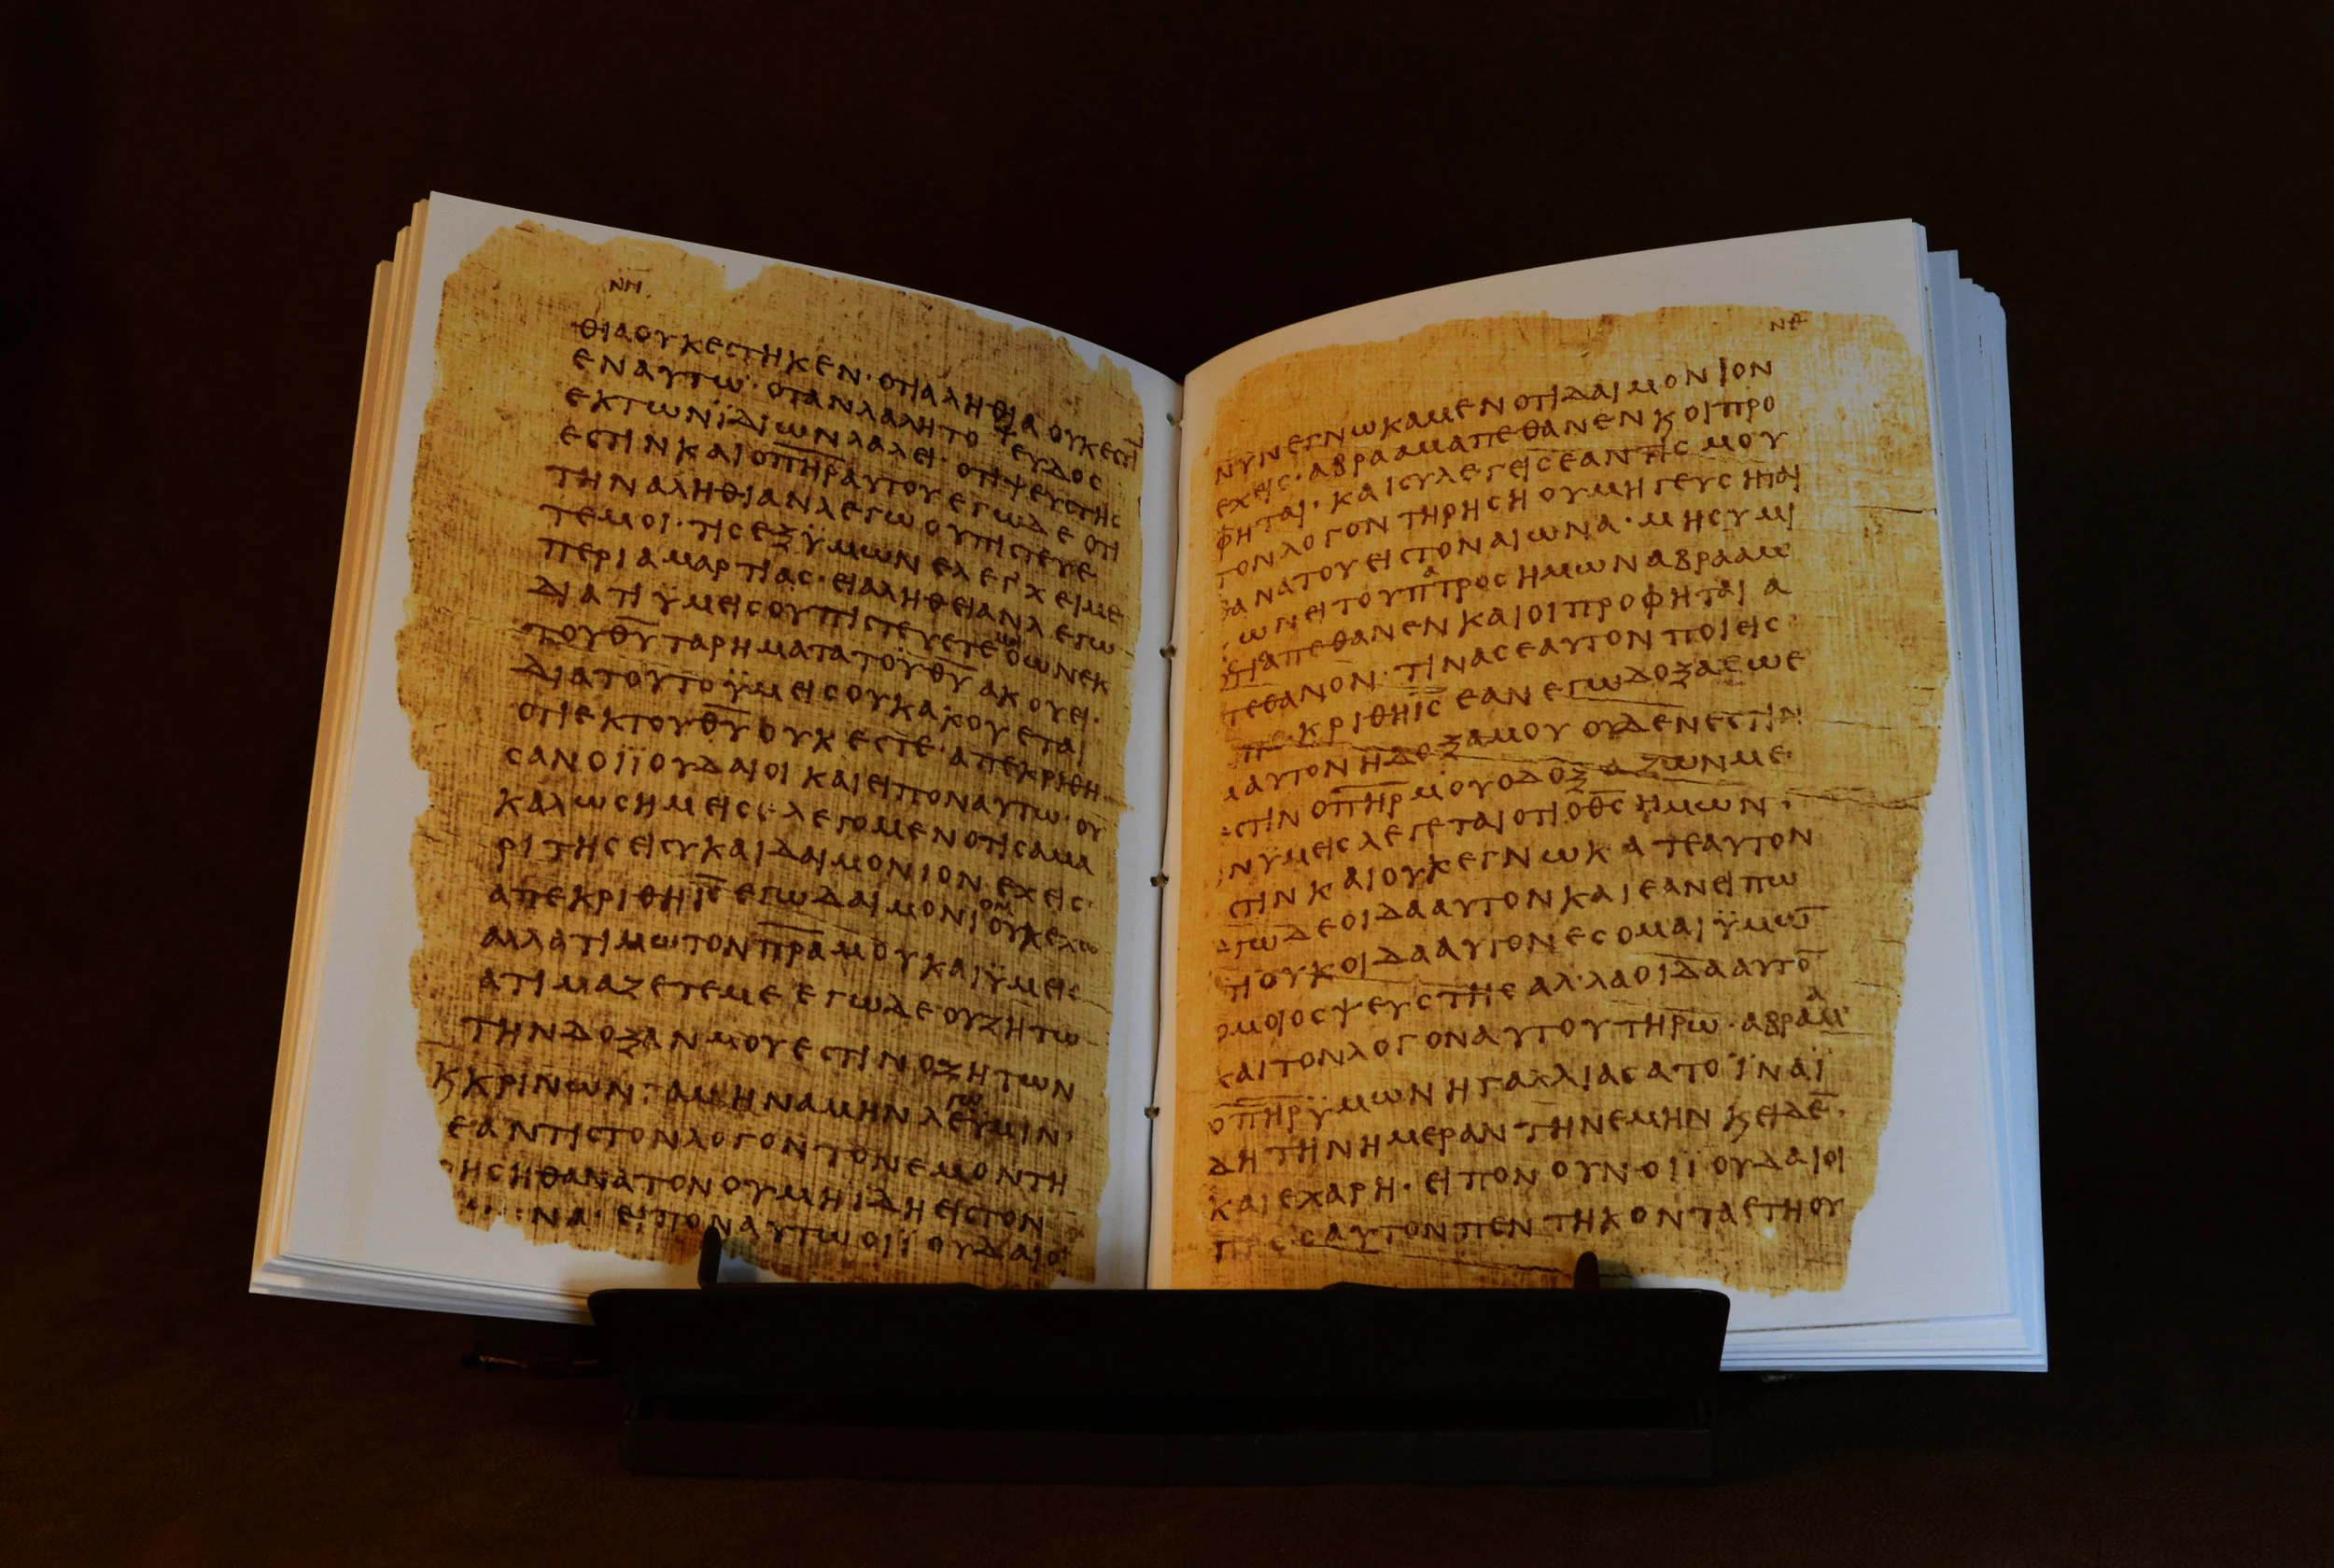 ΝΗ
ΘΙΑΟΥΚΕϹΤΗΚΕΝ·ΟΤΙΑΛΗΘΙΑΟΥΚΕϹΤΙ̅
ΕΝΑΥΤΩ·ΟΤΑΝΛΑΛΗΤΟΨΕΥΔΟϹ
ΕΚΤΩΝΪΔΙΩΝΛΑΛΕΙ·ΟΤΙΨΕΥϹΤΗϹ
ΕϹΤΙΝΚΑΙΟΠ̅Η̅Ρ̅ΑΥΤΟΥΕΓΩΔΕΟΤΙ
ΤΗΝΑΛΗΘΙΑΝΛΕΓΩΟΥΠΙϹΤΕΥΕ
ΤΕΜΟΙ·ΤΙϹΕΞΫΜΩΝΕΛΕΓΧΕΙΜΕ
ΠΕΡΙΑΜΑΡΤΙΑϹ·ΕΙΑΛΗΘΕΙΑΝΛΕΓΩ
ΔΙΑΤΙΫΜΕΙϹΟΥΠΙϹΤΕΥΕΤΕΜΟΙΟΩΝΕΚ
ΤΟΥΘ̅Υ̅ΤΑΡΗΜΑΤΑΤΟΥΘ̅Υ̅ΑΚΟΥΕΙ·
ΔΙΑΤΟΥΤΟΫΜΕΙϹΟΥΚΑΚΟΥΕΤΑΙ
ΟΤΙΕΚΤΟΥΘ̅Υ̅ΟΥΚΕϹΤΕ·ΑΠΕΚΡΙΘΗ
ϹΑΝΟΙΪΟΥΔΑΙΟΙΚΑΙΕΙΠΟΝΑΥΤΩ·ΟΥ
ΚΑΛΩϹΗΜΕΙϹΛΕΓΟΜΕΝΟΤΙϹΑΜΑ
ΡΙΤΗϹΕΙϹΥΚΑΙΔΑΙΜΟΝΙΟΝΕΧΕΙϹ·
ΑΠΕΚΡΙΘΗΙ̅Ϲ̅ΕΓΩΔΑΙΜΟΝΙΟΝΟΥΚΕΧΩ
ΑΛΛΑΤΙΜΩΤΟΝΠ̅Ρ̅Α̅ΜΟΥΚΑΙΫΜΕΙϹ
ΑΤΙΜΑΖΕΤΕΜΕΕΓΩΔΕΟΥΖΗΤΩ
ΤΗΝΔΟΞΑΝΜΟΥΕϹΤΙΝΟΖΗΤΩΝ
ΚΚΡΙΝΩΝ:ΑΜΗΝΑΜΗΝΛΕΓΩΫΜΙΝ·
ΕΑΝΤΙϹΤΟΝΛΟΓΟΝΤΟΝΕΜΟΝΤΗ
ΗϹΗΘΑΝΑΤΟΝΟΥΜΗΙΔΗΕΙϹΤΟΝ
ΝΑ·ΕΙΠΟΝΑΥΤΩΟΙΪΟΥΔΑΙΟΙ
ΝΘ
ΝΥΝΕΓΝΩΚΑΜΕΝΟΤΙΔΑΙΜΟΝΙΟΝ
ΕΧΕΙϹ·ΑΒΡΑΑΜΑΠΕΘΑΝΕΝΚΟΙΠΡΟ
ΦΗΤΑΙ·ΚΑΙϹΥΛΕΓΕΙϹΕΑΝΤΙϹΜΟΥ
ΤΟΝΛΟΓΟΝΤΗΡΗϹΗΟΥΜΗΓΕΥϹΗΤΑΙ
ΘΑΝΑΤΟΥΕΙϹΤΟΝΑΙΩΝΑ·ΜΗϹΥΜΙ
ΩΝΕΙΤΟΥΠΑΤΡΟϹΗΜΩΝΑΒΡΑΑΜ
ΤΙΑΠΕΘΑΝΕΝΚΑΙΟΙΠΡΟΦΗΤΑΙΑ
ΤΕΘΑΝΟΝ·ΤΙΝΑϹΕΑΥΤΟΝΠΟΙΕΙϹ
ΚΡΙΘΗΙ̅Ϲ̅ΕΑΝΕΓΩΔΟΞΑϹΩΕ
ΜΑΥΤΟΝΗΔΟΞΑΜΟΥΟΥΔΕΝΕϹΤΙΝ
ΕϹΤΙΝΟΠ̅Η̅Ρ̅ΜΟΥΟΔΟΞΑΖΩΝΜΕ·
ΝΫΜΕΙϹΛΕΓΕΤΑΙΟΤΙΟΘ̅Ϲ̅ΗΜΩΝ
ϹΤΙΝΚΑΙΟΥΚΕΓΝΩΚΑΤΕΑΥΤΟΝ
ΕΓΩΔΕΟΙΔΑΑΥΤΟΝΚΑΙΕΑΝΕΙΠΩ
ΤΙΟΥΚΟΙΔΑΑΥΤΟΝΕϹΟΜΑΙΫΜΩ̅
ΟΜΟΙΟϹΨΕΥϹΤΗϹΑΛΛΑΟΙΔΑΑΥΤΟ̅
ΚΑΙΤΟΝΛΟΓΟΝΑΥΤΟΥΤΗΡΩ·ΑΒΡΑΑΜ
ΟΠ̅Η̅Ρ̅ΫΜΩΝΗΓΑΛΛΙΑϹΑΤΟΪΝΑΪ
ΔΗΤΗΝΗΜΕΡΑΝΤΗΝΕΜΗΝΚΕΙΔΕ̅·
ΚΑΙΕΧΑΡΗ·ΕΙΠΟΝΟΥΝΟΙΪΟΥΔΑΙΟΙ
ΠΡΟϹΑΥΤΟΝΠΕΝΤΗΚΟΝΤΑΕΤΗΟΥ